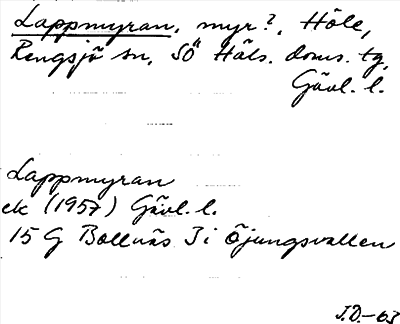 Lappmyran, myr?, Höle,
Rengsjö sn, SÖ Häls. doms. tg,
Gävl. l.
Lappmyran
ek (1957) Gävl. l.
15 G Bollnäs 3 i Öjungsvallen
J.D.-63